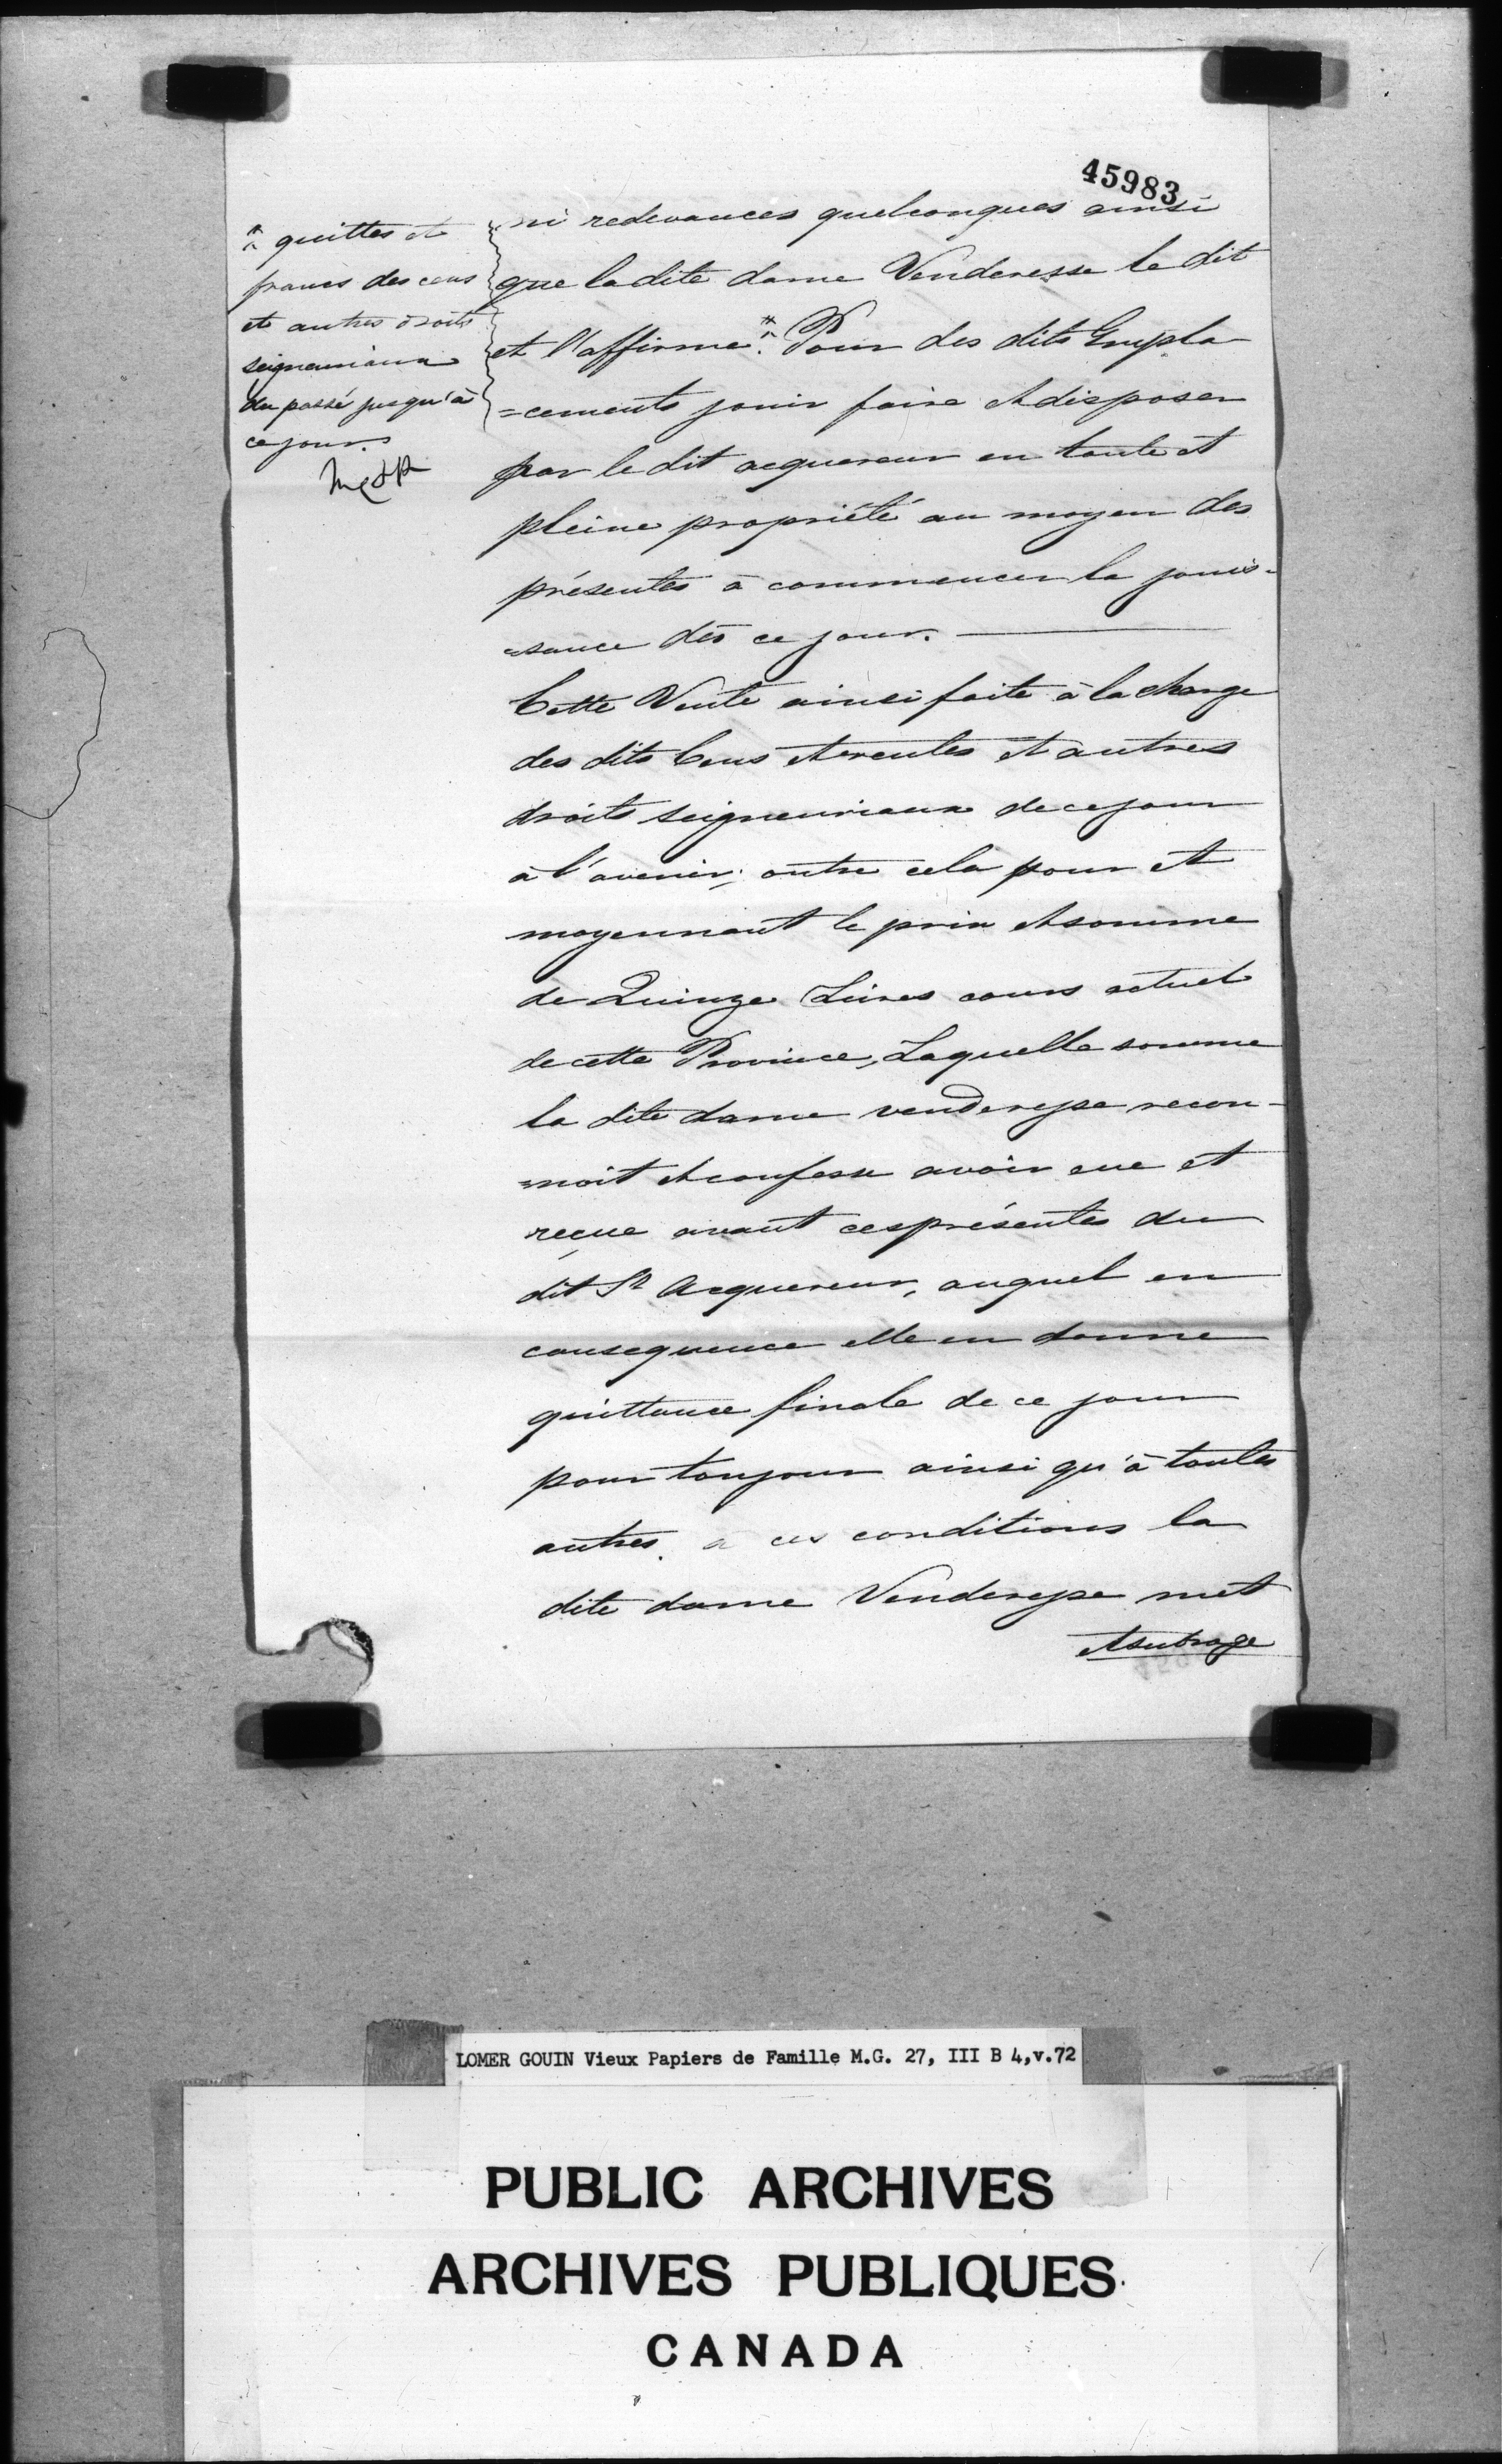 45983
ni redevances quelconques ainsi
que la dite dame Venderesse le dit
et l'affirme.* Pour des dits Empla-
=cements jouir faire et disposer
par le dit acquereur en toute et
pleine propriété au moyen des
présentes à commencer la jouis-
=sance dès ce jour.
Cette Vente ainsi faite à la charge
des dits Cens et rentes et autres
droits seigneuriaux de ce jour
à l'avenir; outre cela pour et
moyennant le prix et somme
de Quinze Livres cours actuel
de cette Province, Laquelle somme
la dite dame venderesse recon-
=noit et confesse avoir eue et
reçue avant ces présentes du
dit Sr Acquereur, auquel en
consequence elle en donne
quittance finale de ce jour
pour toujour ainsi qu'à toutes
autres. a ces conditions la
dite dame Venderesse met
et subroge
* quittes et
francs des cens
et autres droits
seigneuriaux
du passé jusqu'à
ce jour.
LOMER GOUIN Vieux Papiers de Famille M.G. 27, III B 4,v.72
PUBLIC ARCHIVES
ARCHIVES PUBLIQUES
CANADA